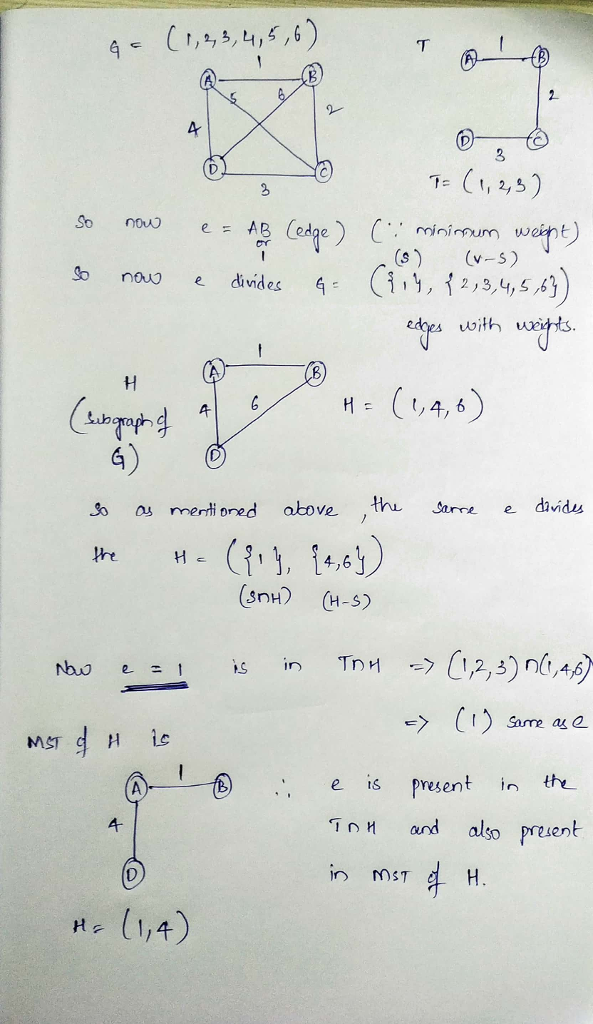 G = (1,2,3,4,5,6)
T
1
A B
5 6
4 2
D C
3
1
A B
2
D C
3
T = (1,2,3)
so now e = AB (edge) (∵ minimum weight)
or
1
(S) (V-S)
so now e divides G = ({1}, {2,3,4,5,6})
edges with weights.
1
A B
H
4 6
(subgraph of
G)
D
H = (1,4,6)
so as mentioned above, the same e divides
the H = ({1}, {4,6})
(S∩H) (H-S)
Now e = 1 is in T∩H => (1,2,3) ∩ (1,4,6)
=> (1) same as e
MST of H is
1
A B
4
D
∴ e is present in the
T∩H and also present
in MST of H.
H = (1,4)